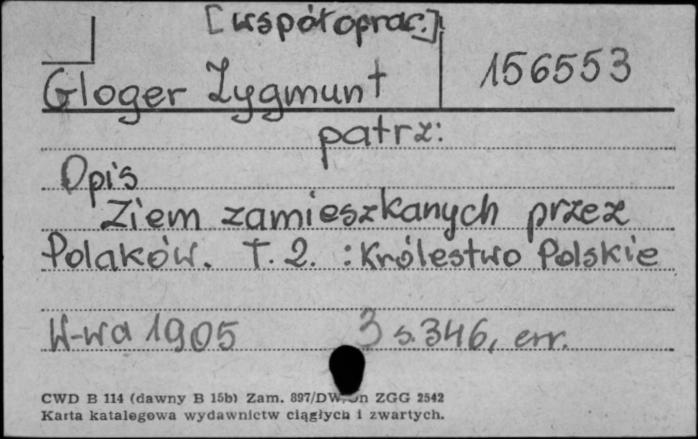 [współoprac.]
Gloger Zygmunt 156553
patrz:
Opis
Ziem zamieszkanych przez
Polaków. T. 2. : Królestwo Polskie
W-wa 1905 3 s. 346, err.
CWD B 114 (dawny B 15b) Zam. 897/DW. ZGG 2542
Karta katalogowa wydawnictw ciągłych i zwartych.